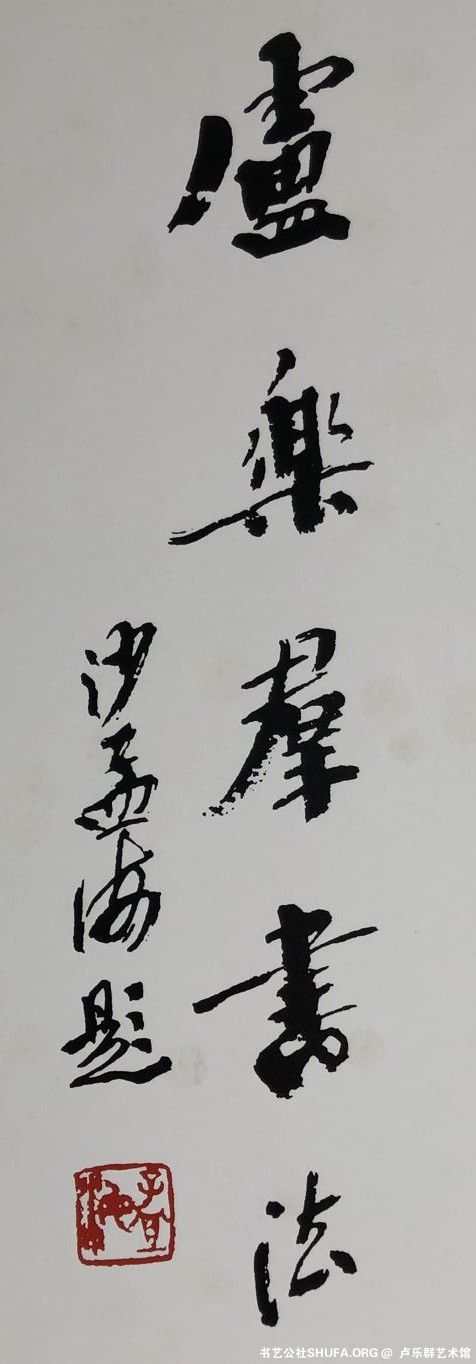 盧樂羣書法
沙孟海題
书艺公社SHUFA.ORG @ 卢乐群艺术馆